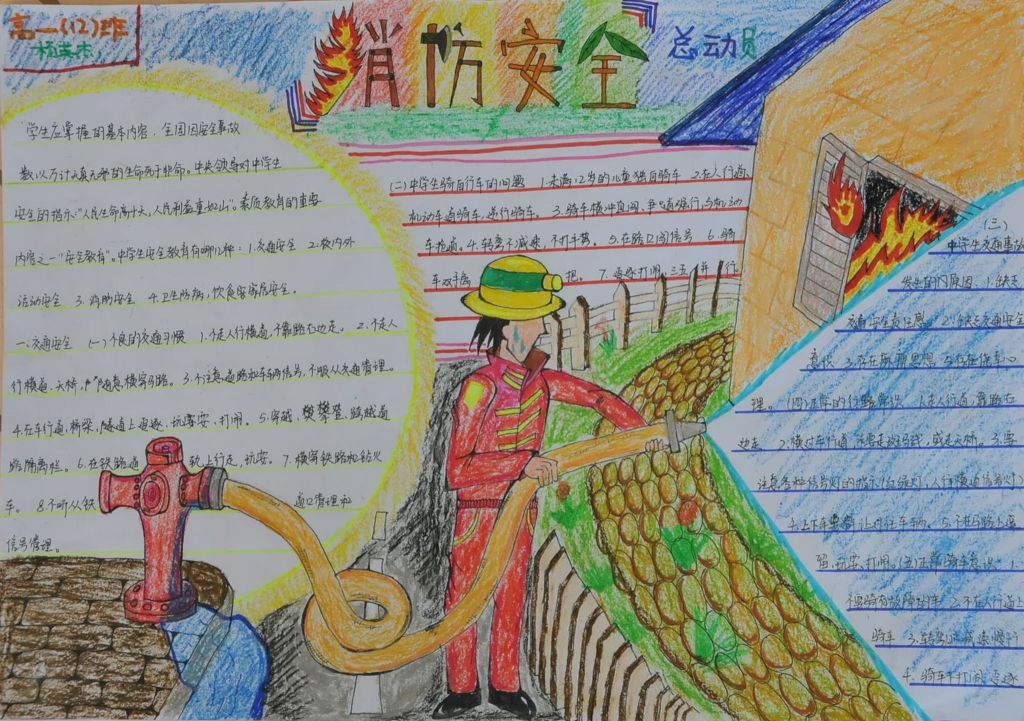 高一(12)班
杨英杰
消防安全
总动员
学生应掌握的基本内容，全国因安全事故
数以万计天真无邪的生命死于非命。中央领导对中学生
安全的指示"人民生命高于天，人民利益重如山"。素质教育的重要
内容之一"安全教育"。中学生安全教育有哪几种：1.交通安全 2.校内外
活动安全 3.消防安全 4.卫生防病，饮食家居安全.
一.交通安全 (一)不良的交通习惯 1.不走人行横道，不靠路右边走。2.不走人
行横道、天桥，随意横穿马路。3.不注意道路和车辆信号，不服从交通管理。
4.在车行道、桥梁、隧道上追逐、玩耍、打闹。5.穿越、攀登、跨越道
路隔离栏。6.在铁路道轨上行走，玩耍。7.横穿铁路和钻火
车。8.不听从铁道口管理和
信号管理。
(二)中学生骑自行车的问题 1.未满12岁的儿童独自骑车 2.在人行道、
机动车道骑车，逆行骑车。3.骑车横冲直闯，争道强行，与机动
车抢道。4.转弯不减速，不打手势。5.在路口闯信号 6.骑
车双手离把。7.追逐打闹，三五并行
(三)
中学生交通事故
发生的原因：1.缺乏
交通安全责任感 2.缺乏交通安全
意识 3.存在麻痹思想 5.存在侥幸心
理。(四)正常的行路常识 1.走人行道，靠路右
边走 2.横过车行道，要走斑马线，或走天桥。3.要
注意各种信号灯的指示(红绿灯，人行横道信号灯)
4.上下车 让对往车辆。5.不在马路上逗
留，玩耍，打闹。(五)正常骑车意识 1.
不要骑有故障的车 2.不在人行道上
骑车 3.转弯应减速慢行
4.骑车不打闹，追逐